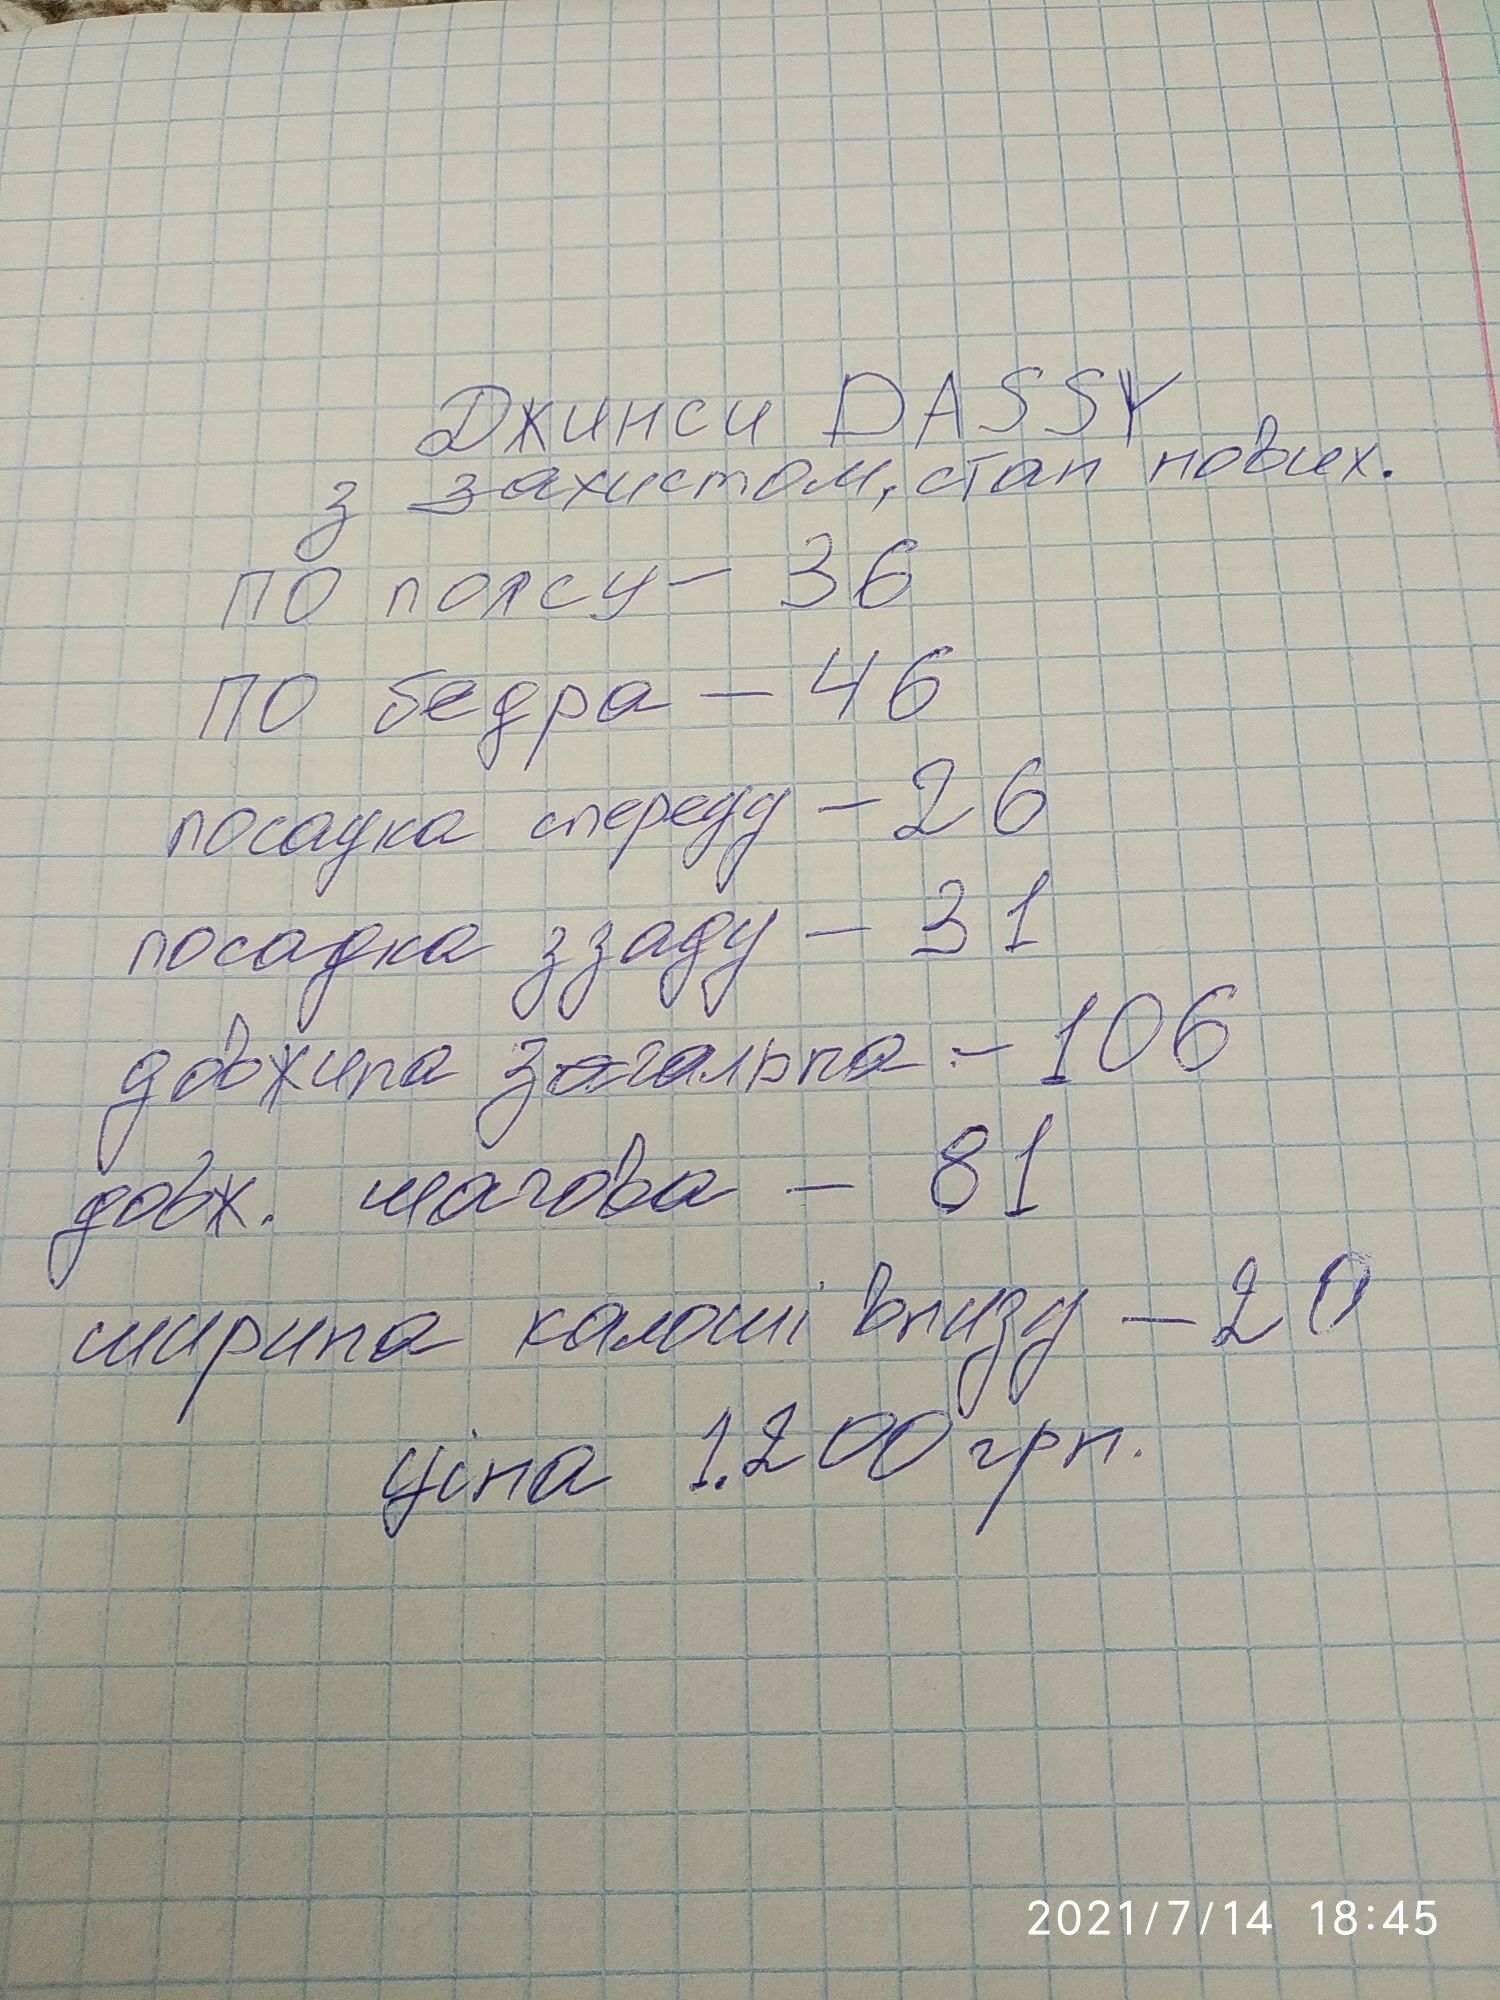 Джинси DASSY
з захистом, стан нових.
по поясу - 36
по бедра - 46
посадка спереду - 26
посадка ззаду - 31
довжина загальна - 106
довж. шагова - 81
ширина калоші внизу - 20
ціна 1.200 грн.
2021/7/14 18:45